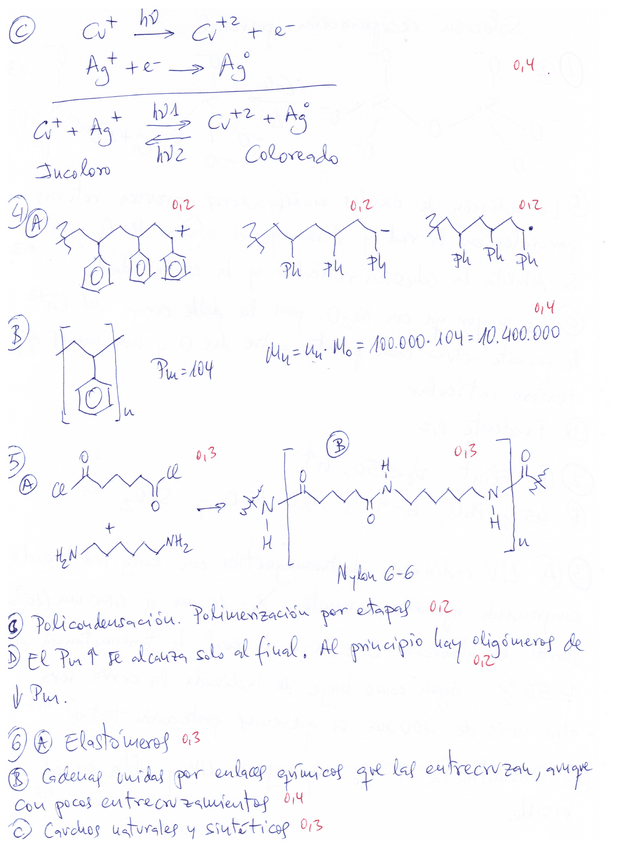 C) Cu⁺ hν → Cu⁺² + e⁻
Ag⁺ + e⁻ → Ag° 0,4.
Cu⁺ + Ag⁺ hν1 ⇄ hν2 Cu⁺² + Ag°
Incoloro Coloreado
4) A) + 0,2 - 0,2 • 0,2
Ph Ph Ph Ph Ph Ph
B) n Pm = 104 Mn = un · M₀ = 100.000 · 104 = 10.400.000 0,4
5) A) Cl O O Cl 0,3 → B) 0,3
N H O O N H N H O n
+
H₂N NH₂
Nylon 6-6
C) Policondensación. Polimerización por etapas 0,2
D) El Pm ↑ se alcanza solo al final. Al principio hay oligómeros de
↓ Pm. 0,2
6) A) Elastómeros 0,3
B) Cadenas unidas por enlaces químicos que las entrecruzan, aunque
con pocos entrecruzamientos 0,4
C) Cauchos naturales y sintéticos 0,3